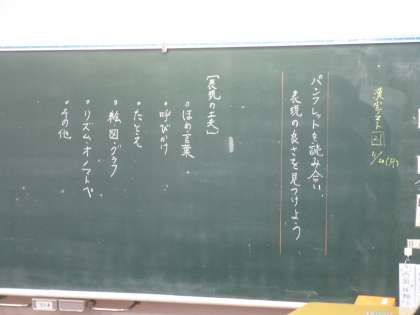 漢字テスト
パンフレットを読み合い
表現の良さを見つけよう
[表現の工夫]
・ほめ言葉
・呼びかけ
・たとえ
・絵図・グラフ
・リズム・オノマトペ
・その他